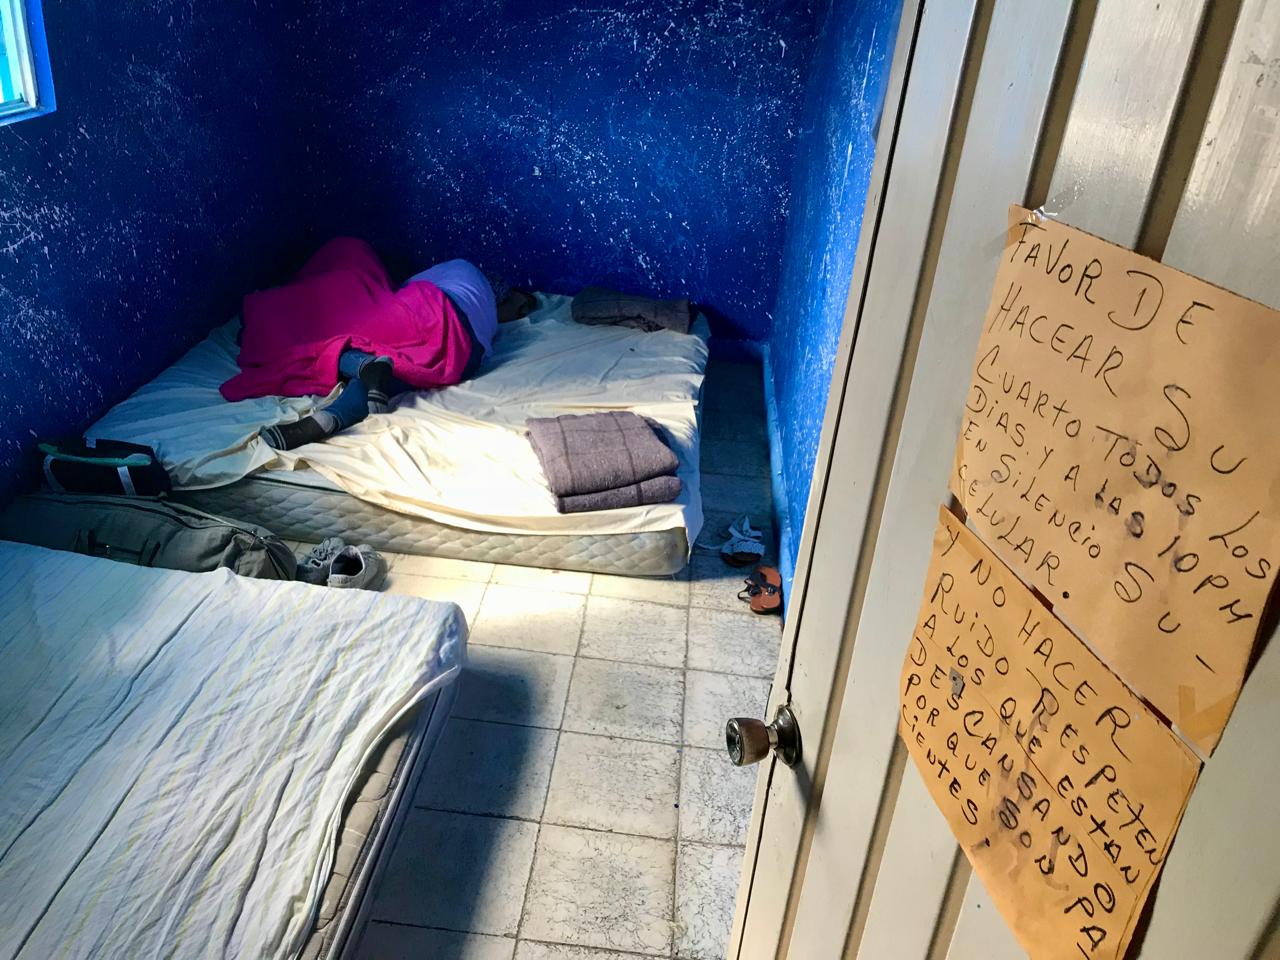 FAVOR DE
HACEAR SU
CUARTO TODOS LOS
DIAS. Y A LAS 10PM
EN SiLENCiO SU
CELULAR.
Y NO HACER
RUiDO RESPETEN
A LOS QUE ESTAN
DESCANSANDO
POR QUE SON PA
CiENTES.